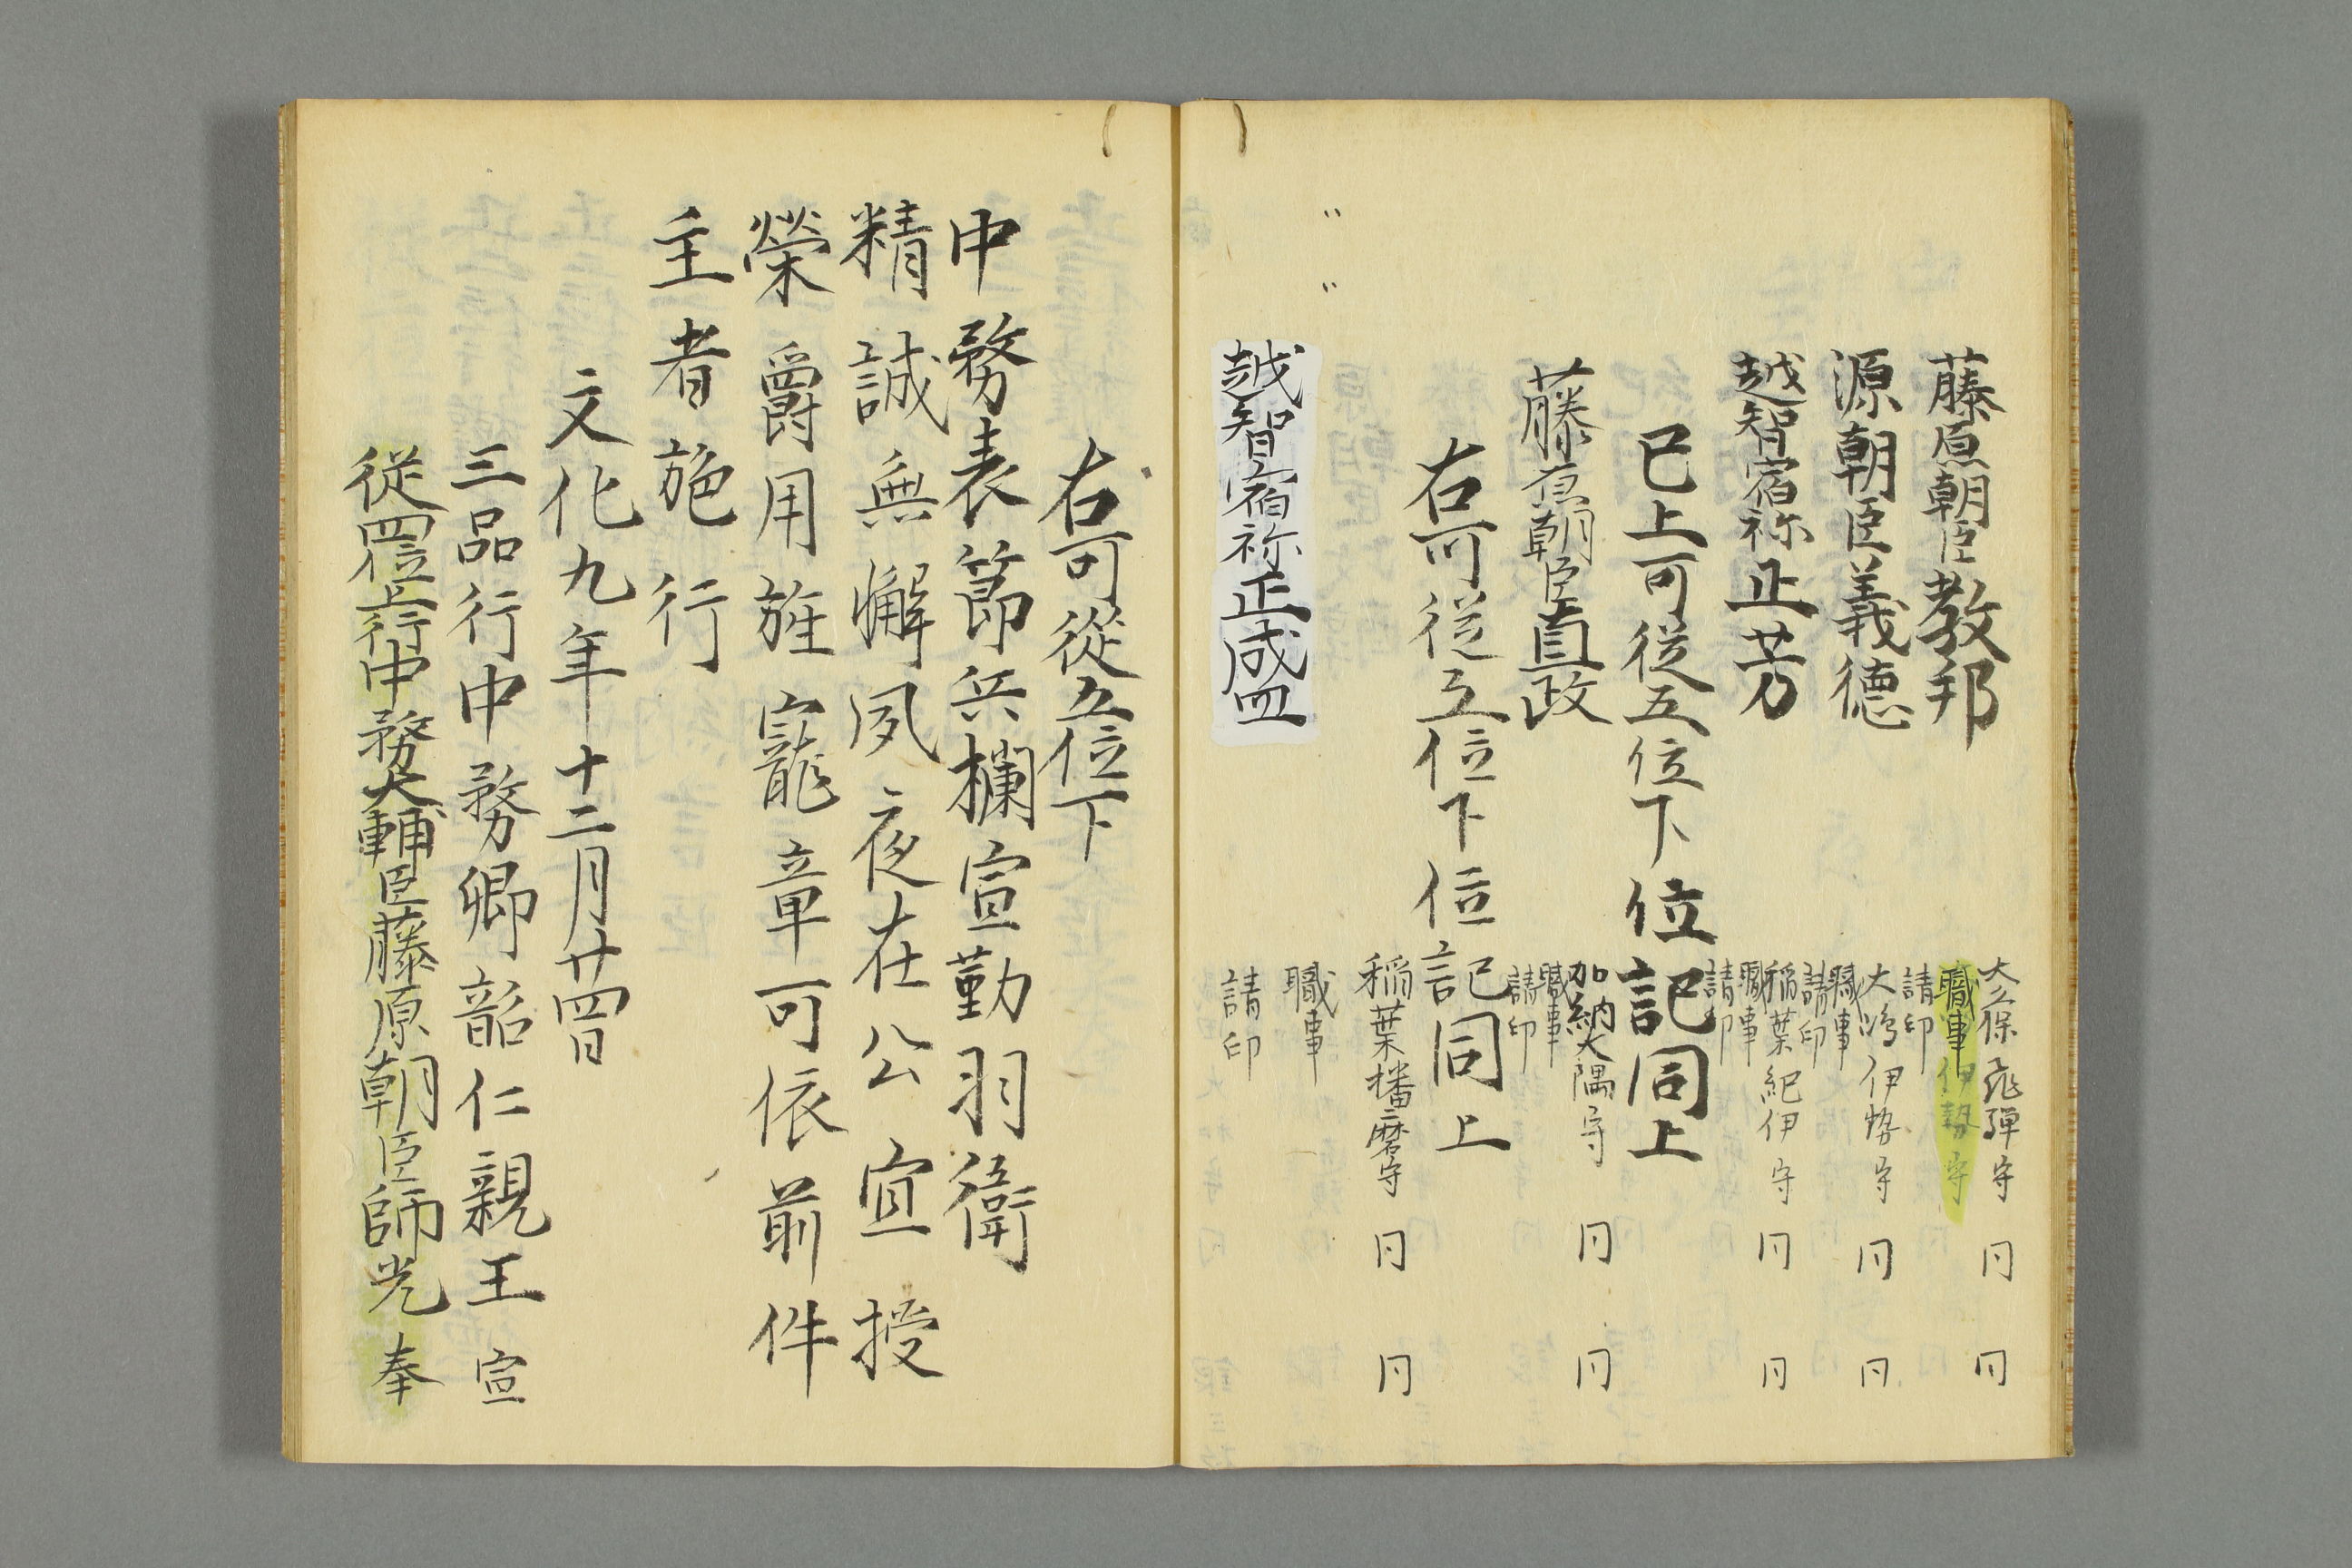 藤原朝臣教邦
大久保飛騨守 同 同
職事 伊勢守
請印
源朝臣義徳
大嶋伊勢守 同 同
職事
請印
越智宿祢正芳
稲葉紀伊守 同 同
職事
請印
已上可従五位下位記同上
藤原朝臣直政
加納大隅守 同 同
職事
請印
右可従五位下位記同上
稲葉播磨守 同 同
〃 〃
職事
越智宿祢正盛
請印
右可従五位下
中務表節兵欄宣勤羽衛
精誠無懈夙夜在公宜授
榮爵用旌寵章可依前件
主者施行
文化九年十二月廿四日
三品行中務卿韶仁親王 宣
従四位上行中務大輔臣藤原朝臣師光 奉